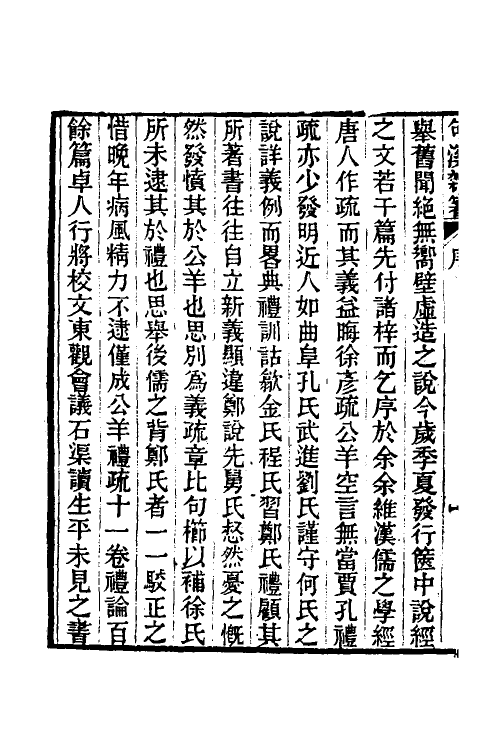 句溪雜著 序
舉舊聞絕無嚮壁虛造之說今歲季夏發行篋中說經
之文若干篇先付諸梓而乞序於余余維漢儒之學經
唐人作疏而其義益晦徐彥疏公羊空言無當賈孔禮
疏亦少發明近人如曲阜孔氏武進劉氏謹守何氏之
說詳義例而畧典禮訓詁歙金氏程氏習鄭氏禮顧其
所著書往往自立新義顯違鄭說先舅氏惄然憂之慨
然發憤其於公羊也思別為義疏章比句櫛以補徐氏
所未逮其於禮也思舉後儒之背鄭氏者一一駁正之
惜晚年病風精力不逮僅成公羊禮疏十一卷禮論百
餘篇卓人行將校文東觀會議石渠讀生平未見之書